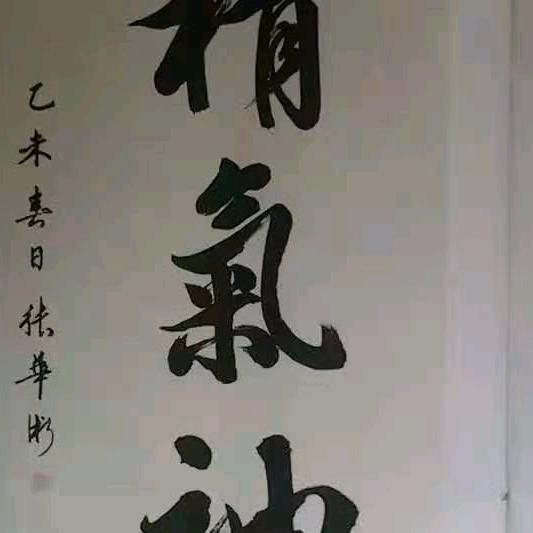 精氣神
乙未春日張華彬